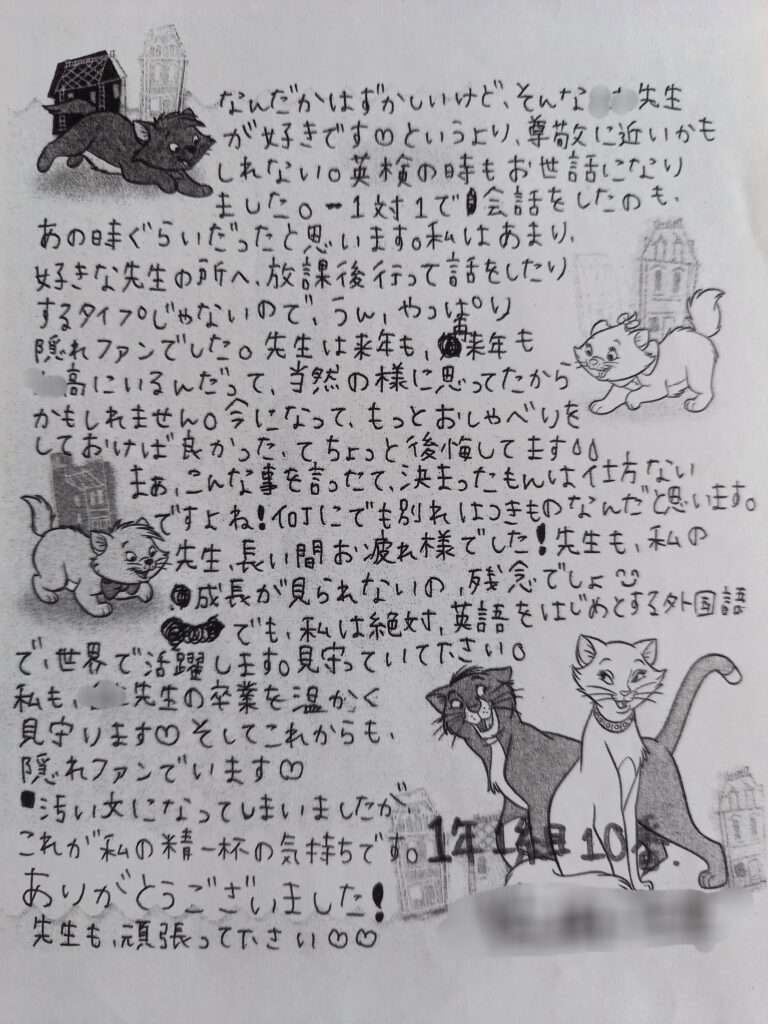 なんだかはずかしいけど、そんな先生
が好きです♡というより、尊敬に近いかも
しれない。英検の時もお世話になり
ました。ー1対1で会話をしたのも、
あの時ぐらいだったと思います。私はあまり、
好きな先生の所へ、放課後行って話をしたり
するタイプじゃないので、うん、やっぱり
隠れファンでした。先生は来年も、再来年も
高にいるんだって、当然の様に思ってたから
かもしれません。今になって、もっとおしゃべりを
しておけば良かった、てちょっと後悔してます
まぁ、こんな事を言ったて、決まったもんは仕方ない
ですよね!何にでも別れはつきものなんだと思います。
先生、長い間お疲れ様でした!先生も、私の
成長が見られないの、残念でしょ
でも、私は絶対、英語をはじめとする外国語
で、世界で活躍します。見守っていて下さい。
私も、先生の卒業を温かく
見守ります♡そしてこれからも、
隠れファンでいます♡
汚い文になってしまいましたが、
これが私の精一杯の気持ちです。
1年1組10番.
ありがとうございました!
先生も、頑張って下さい♡♡